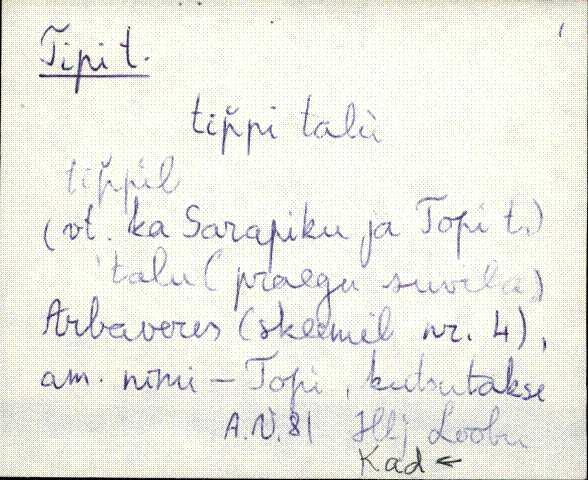 Tipi t.
tip̆pi talù
tip̆pil
(vt. ka Sarapiku ja Topi t.)
talu (praegu suvila)
Arbaveres (skeemil nr. 4),
am. nimi – Topi, kutsutakse
A.V. 81 Hlj Loobu
Kad ←